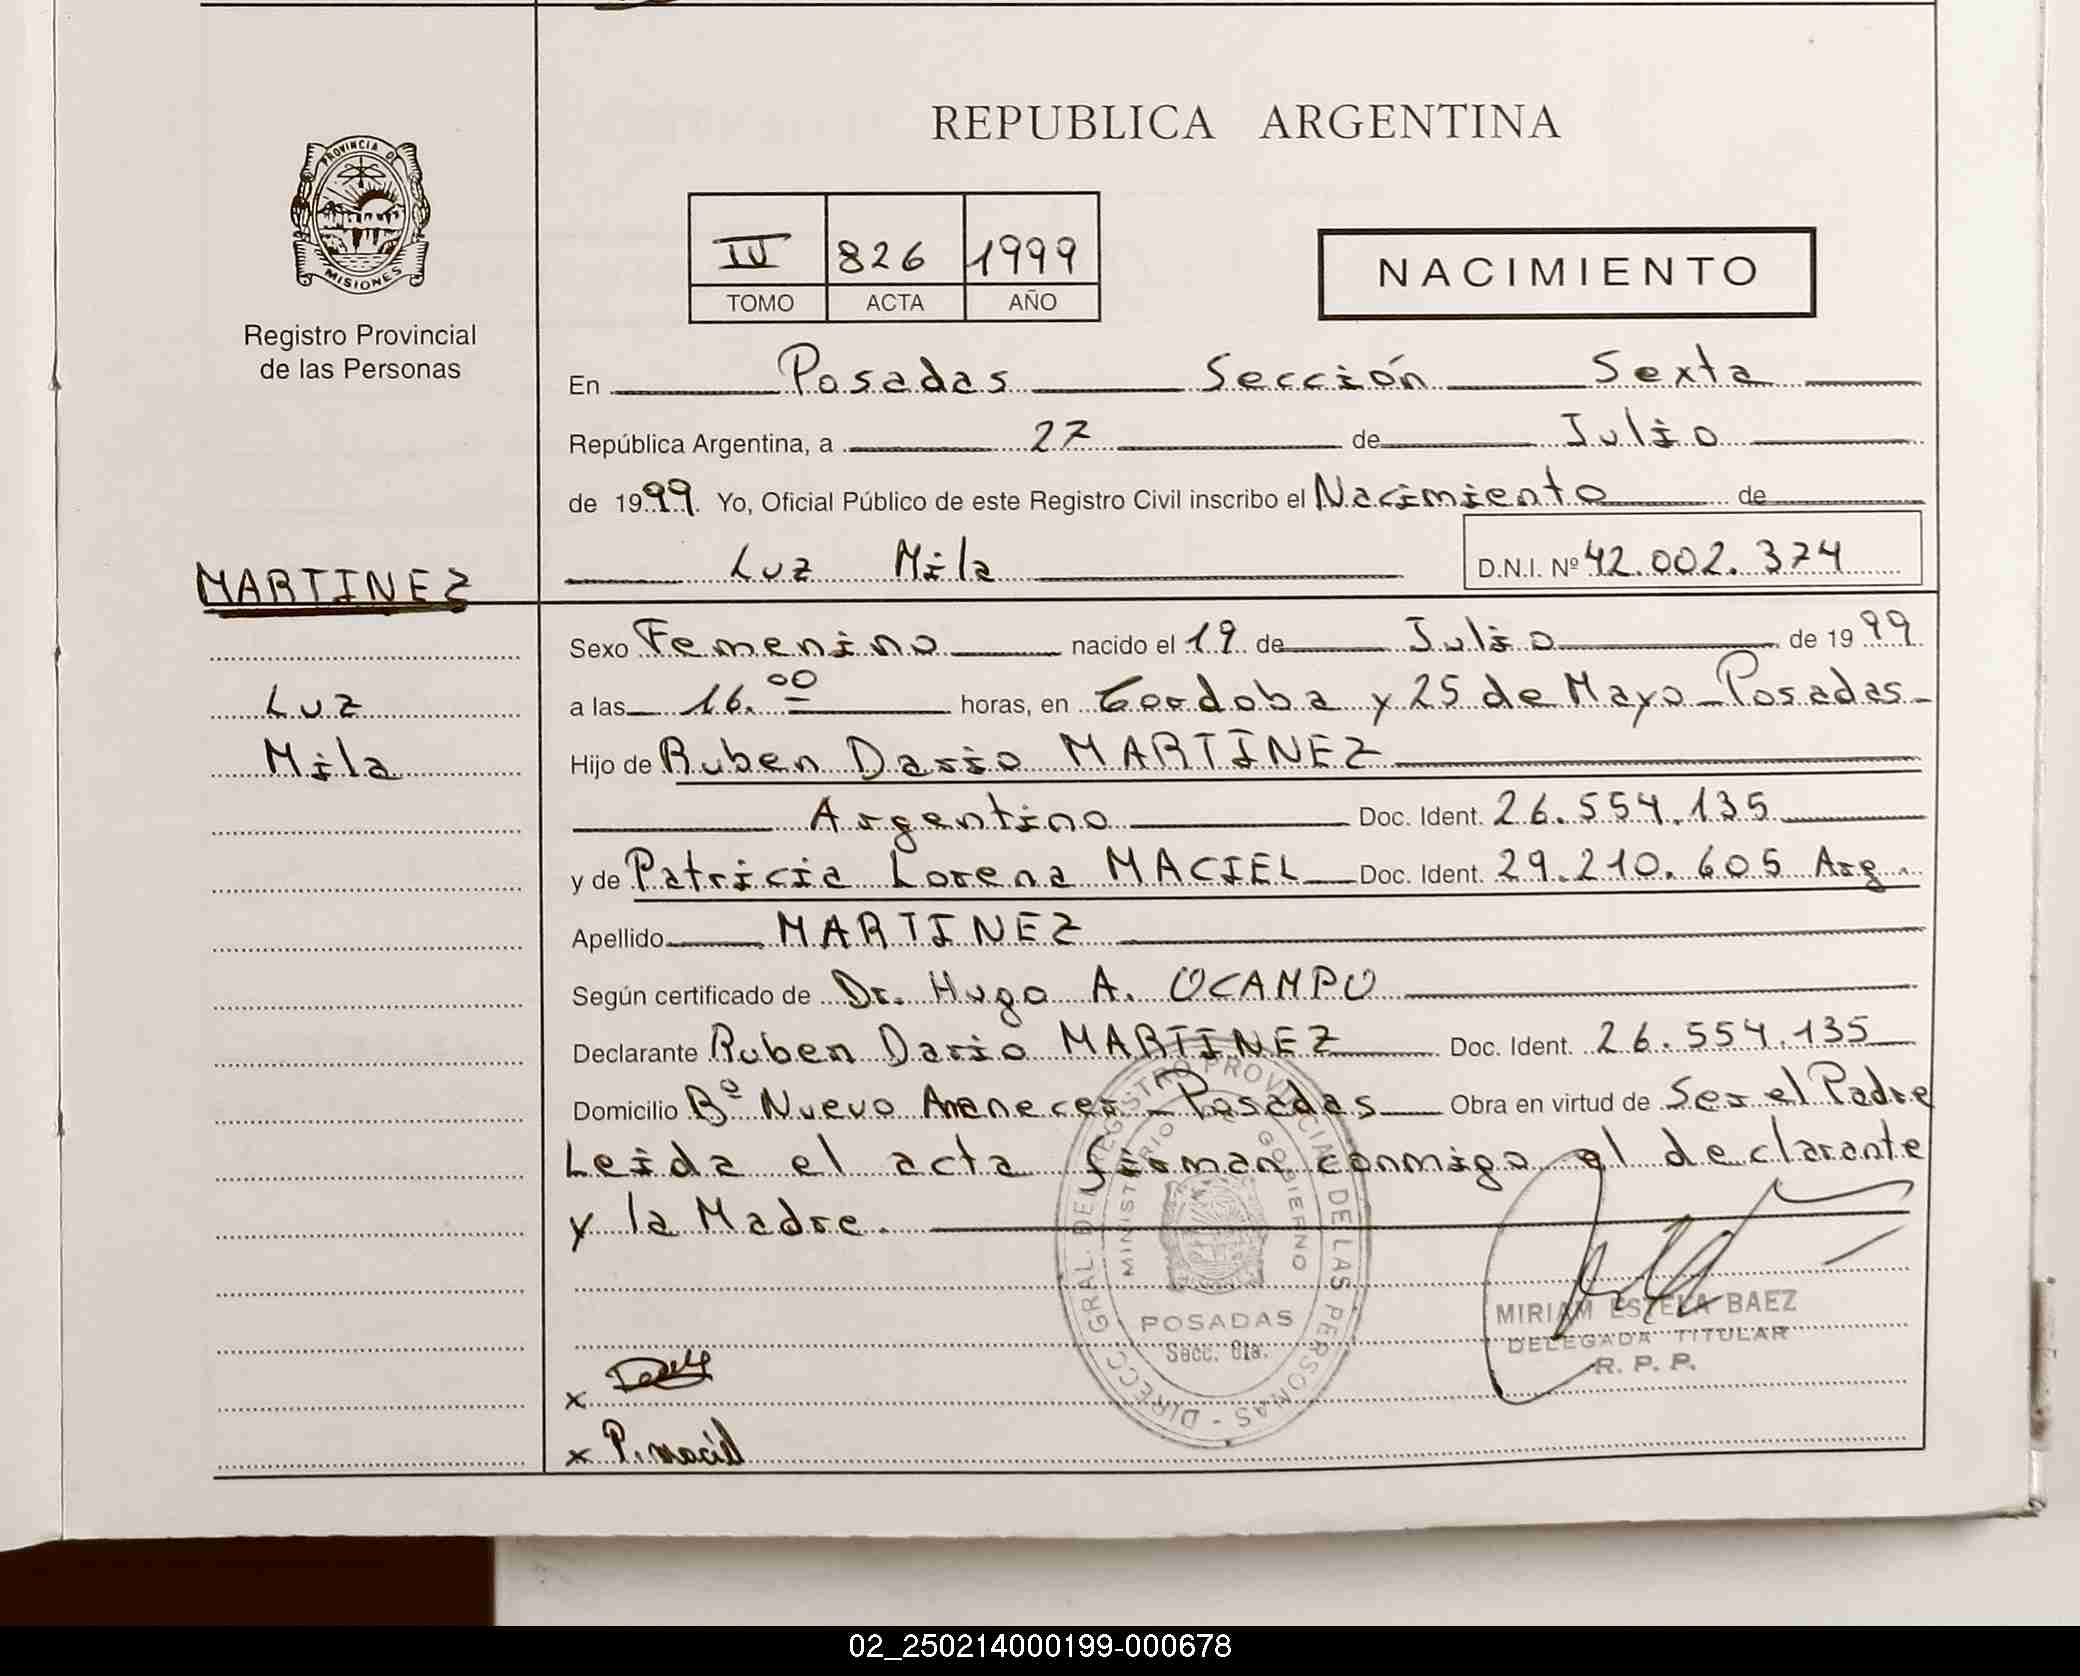 PROVINCIA DE
MISIONES
Registro Provincial
de las Personas
REPUBLICA ARGENTINA
IV 826 1999
TOMO ACTA AÑO
NACIMIENTO
En Posadas Sección Sexta
República Argentina, a 27 de Julio
de 1999. Yo, Oficial Público de este Registro Civil inscribo el Nacimiento de
Luz Mila D.N.I. Nº 42.002.374
MARTINEZ
Luz
Mila
Sexo Femenino nacido el 19 de Julio de 1999
a las 16.00 horas, en Cordoba y 25 de Mayo - Posadas -
Hijo de Ruben Dario MARTINEZ
Argentino Doc. Ident. 26.554.135
y de Patricia Lorena MACIEL Doc. Ident. 29.210.605 Arg.
Apellido MARTINEZ
Según certificado de Dr. Hugo A. OCAMPO
Declarante Ruben Dario MARTINEZ Doc. Ident. 26.554.135
Domicilio Bº Nuevo Amanecer - Posadas Obra en virtud de Ser el Padre
Leida el acta firman conmigo el declarante
y la Madre.
DIRECC. GRAL. DEL REGISTRO PROVINCIAL DE LAS PERSONAS -
MINISTERIO GOBIERNO
POSADAS
Secc. 6ta.
MIRIAM ESTELA BAEZ
DELEGADA TITULAR
R. P. P.
x
x P. Maciel
02_250214000199-000678